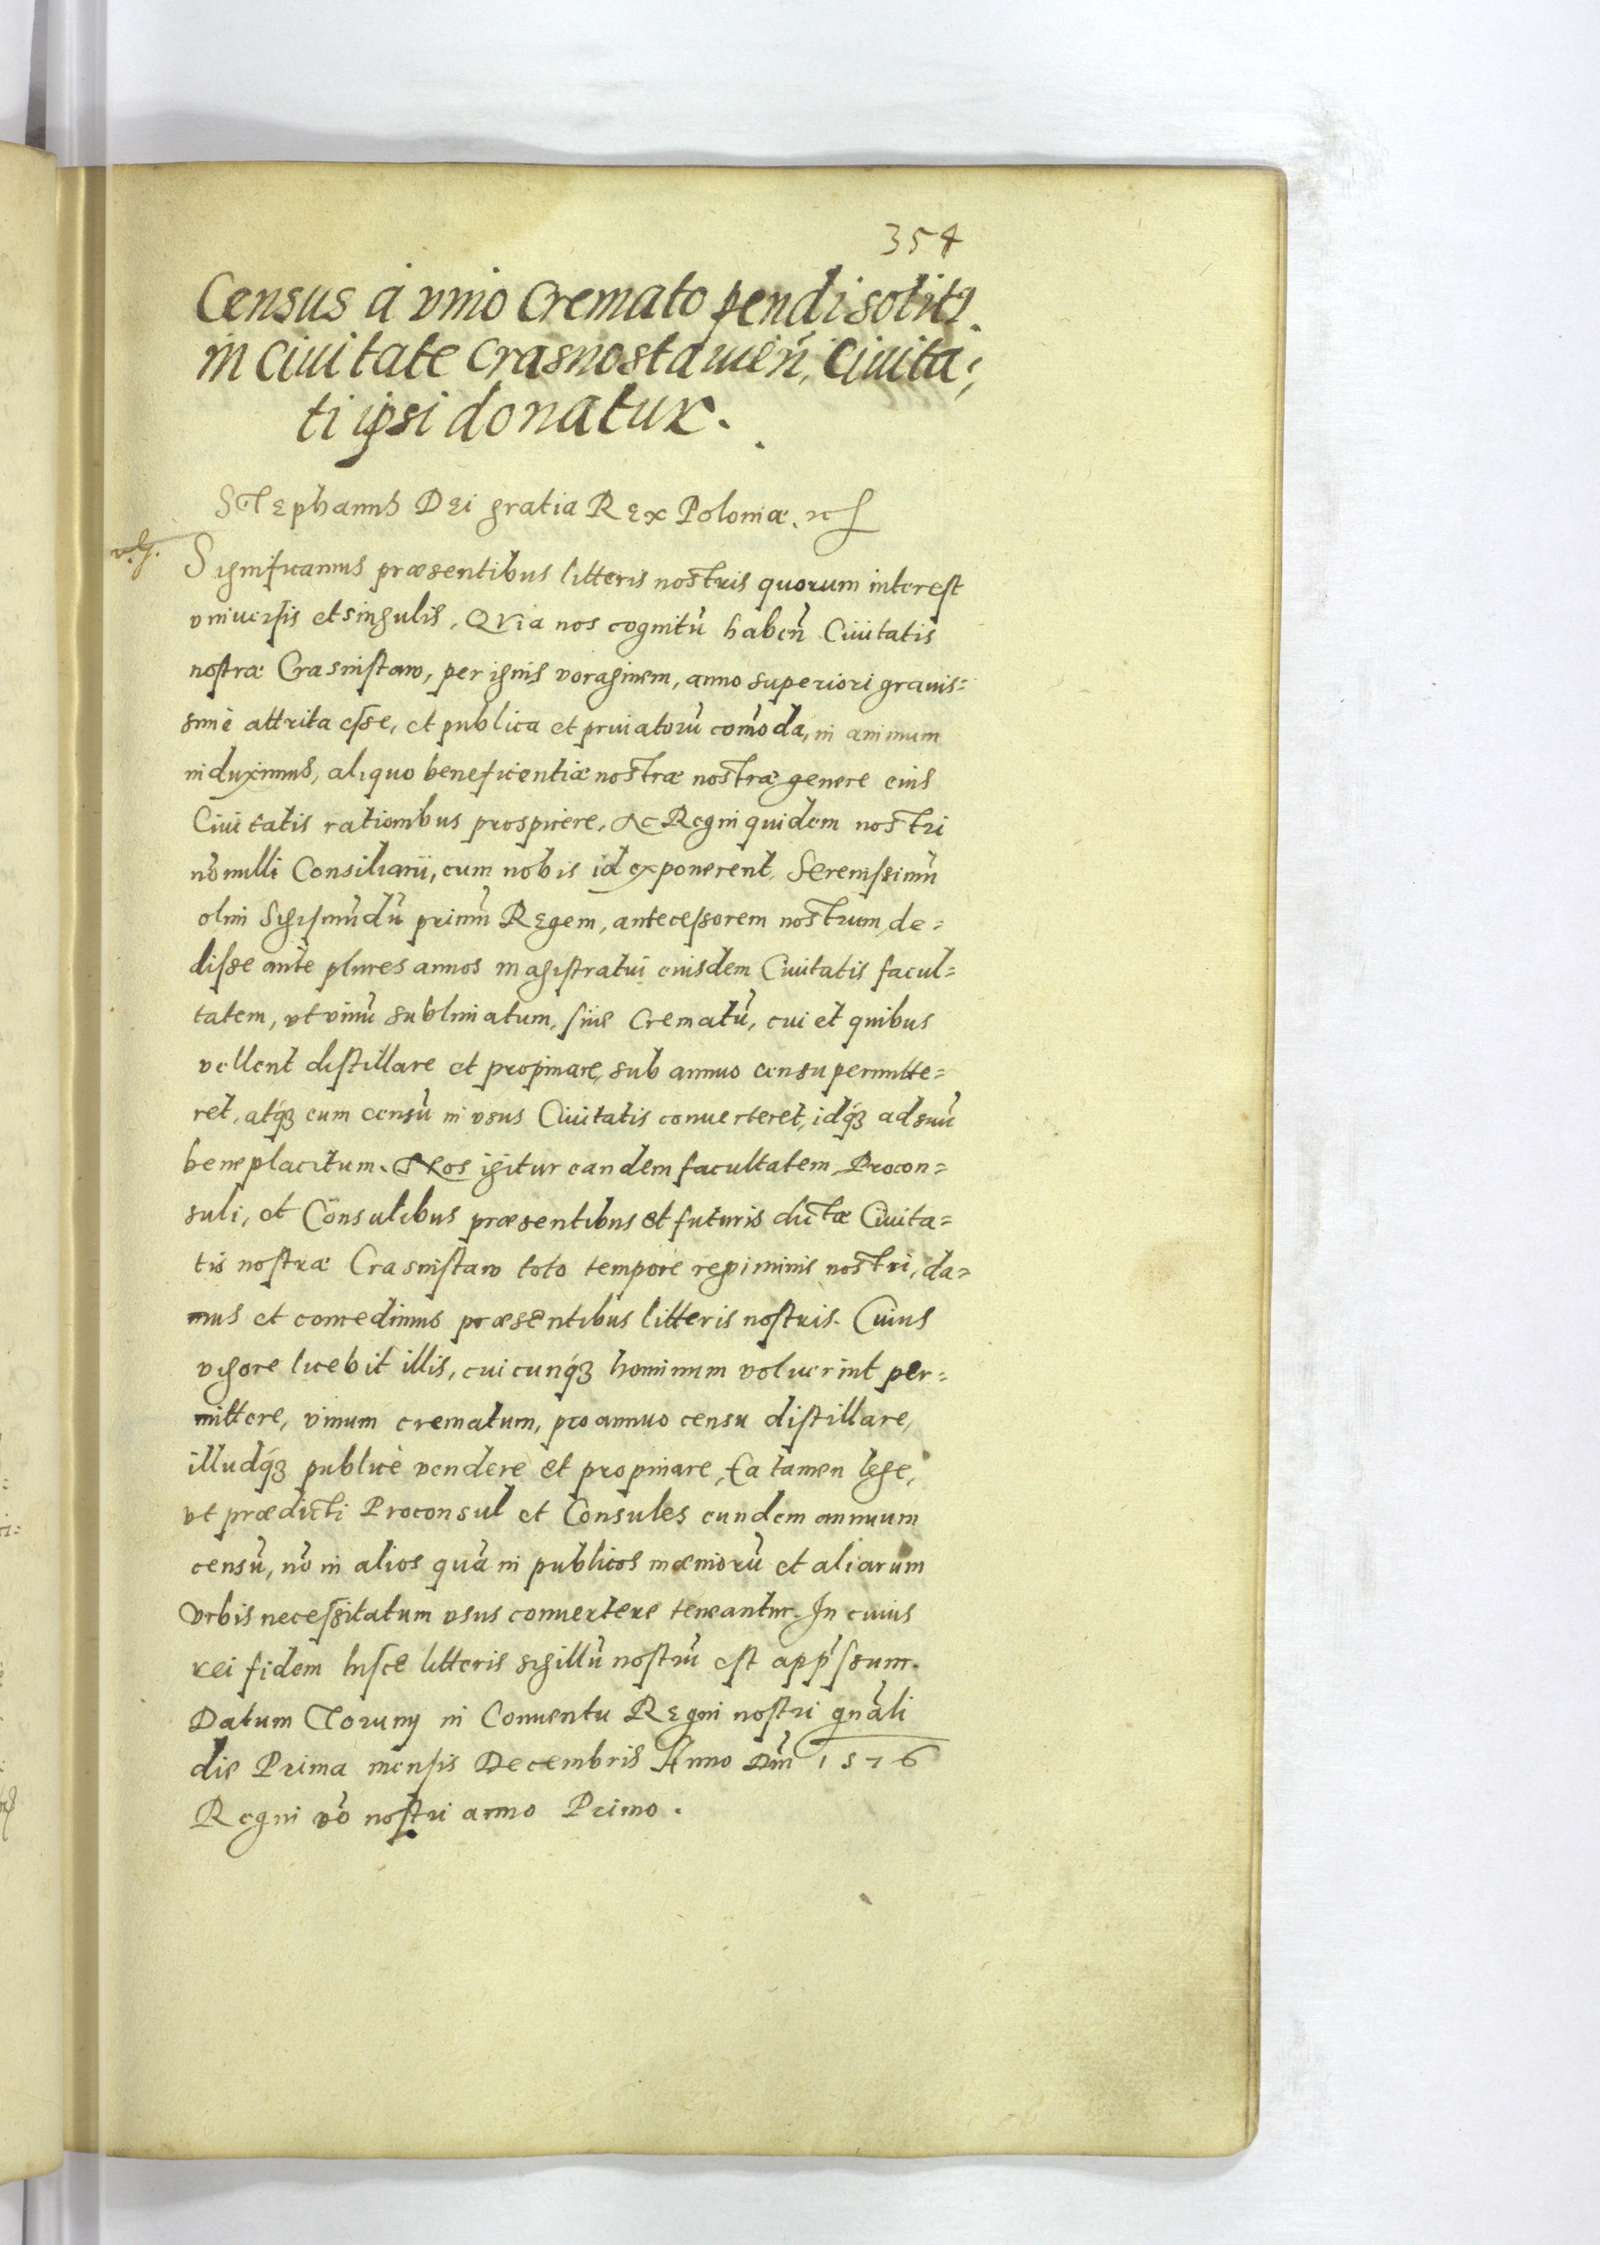 354
Census à vino Cremato pendi solitꝯ
in Ciuitate Crasnostauieñ, Ciuita;
ti ipsi donatur.
STEphanus DEi gratia REx Poloniæ,
Significamus præsentibus litteris nostris quorum interest
vniuersis et singulis, QVia nos cognitū habeñ Ciuitatis
nostræ Crasnistaw, per ignis voraginem, anno superiori grauis=
simè attrita esse, et publica et priuatorū com̄oda, in animum
induximus, aliquo beneficentiæ nostræ nostræ genere eius
Ciuitatis rationibus prospicere, Ac Regni quidem nostri
nōnulli Consiliarii, cum nobis id exponerent, Serenissimū
olim Sigismūdū primū REgem, antecessorem nostrum, de=
disse ante plures annos magistratui eiusdem Ciuitatis facul=
tatem, vt vinū sublimatum, siue Crematū, cui et quibus
vellent distillare et propinare, sub annuo censu permitte=
ret, atq́ꝫ eum censū in vsus Ciuitatis conuerteret, idq́ꝫ ad suū
beneplacitum. Nos igitur eandem facultatem, Procon=
suli, et Consulibus præsentibus et futuris dictæ Ciuita=
tis nostræ Crasnistaw toto tempore regiminis nostri, da=
mus et concedimus præsentibus litteris nostris. Cuius
vigore licebit illis, cuicunq́ꝫ hominum voluerint per=
mittere, vinum crematum, pro annuo censu distillare,
illudq́ꝫ publicè vendere et propinare, Ea tamen lege,
vt prædicti Proconsul et Consules eundem annuum
censū, nō in alios quā in publicos mœniorū et aliarum
Vrbis necessitatum vsus conuertere teneantur. In cuius
rei fidem hisce litteris sigillū nostrū est app̄ssum.
Datum Toruny in Conuentu REgni nostri gnāli
die Prima mensis Decembris Anno Dm̄ 1576
Regni vō nostri anno Primo.